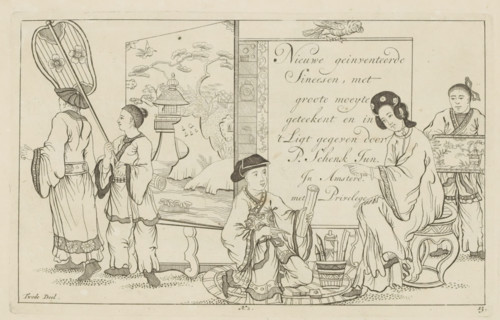 Nieuwe geinventeerde
Sineesen, met
groote moeyte
geteekent en in
't Ligt gegeven door
P. Schenk Jun.
In Amsterd.
met Privilegie
Tweede Deel
N.° 1.